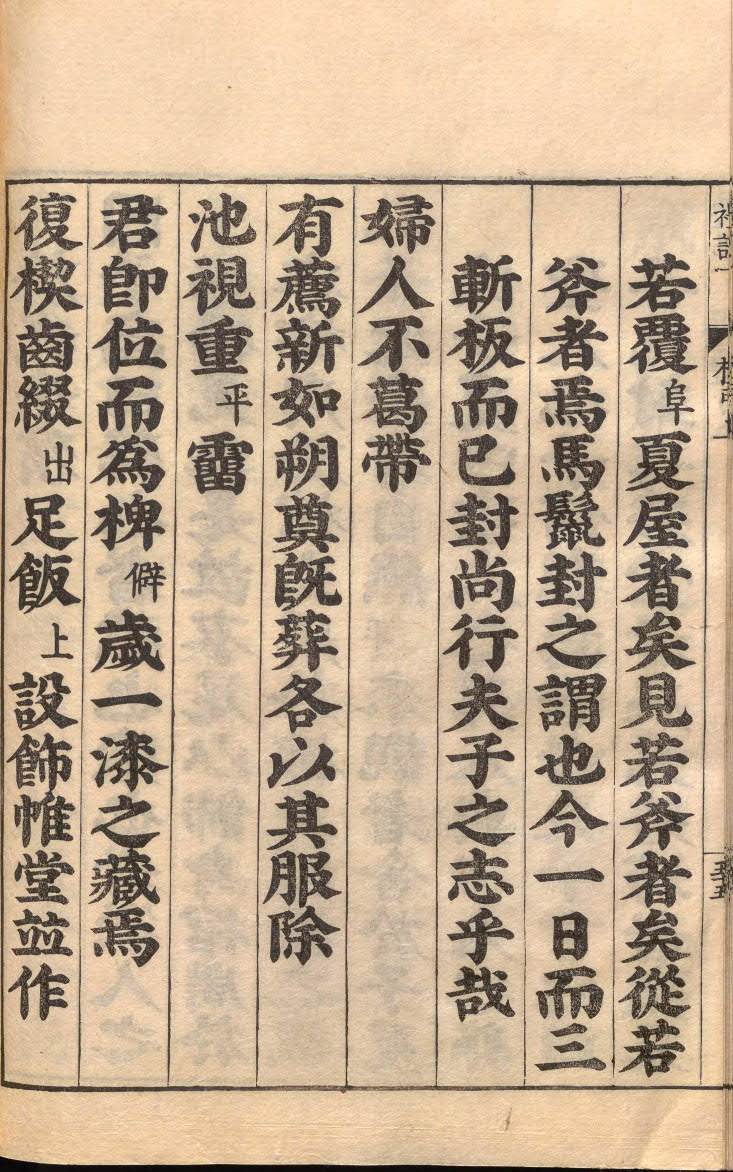 若覆阜夏屋者矣見若斧者矣從若
斧者焉馬鬛封之謂也今一日而三
斬板而已封尚行夫子之志乎哉
婦人不葛帶
有薦新如朔奠旣葬各以其服除
池視重平霤
君卽位而爲椑僻歲一漆之藏焉
復楔齒綴出足飯上設飾帷堂並作